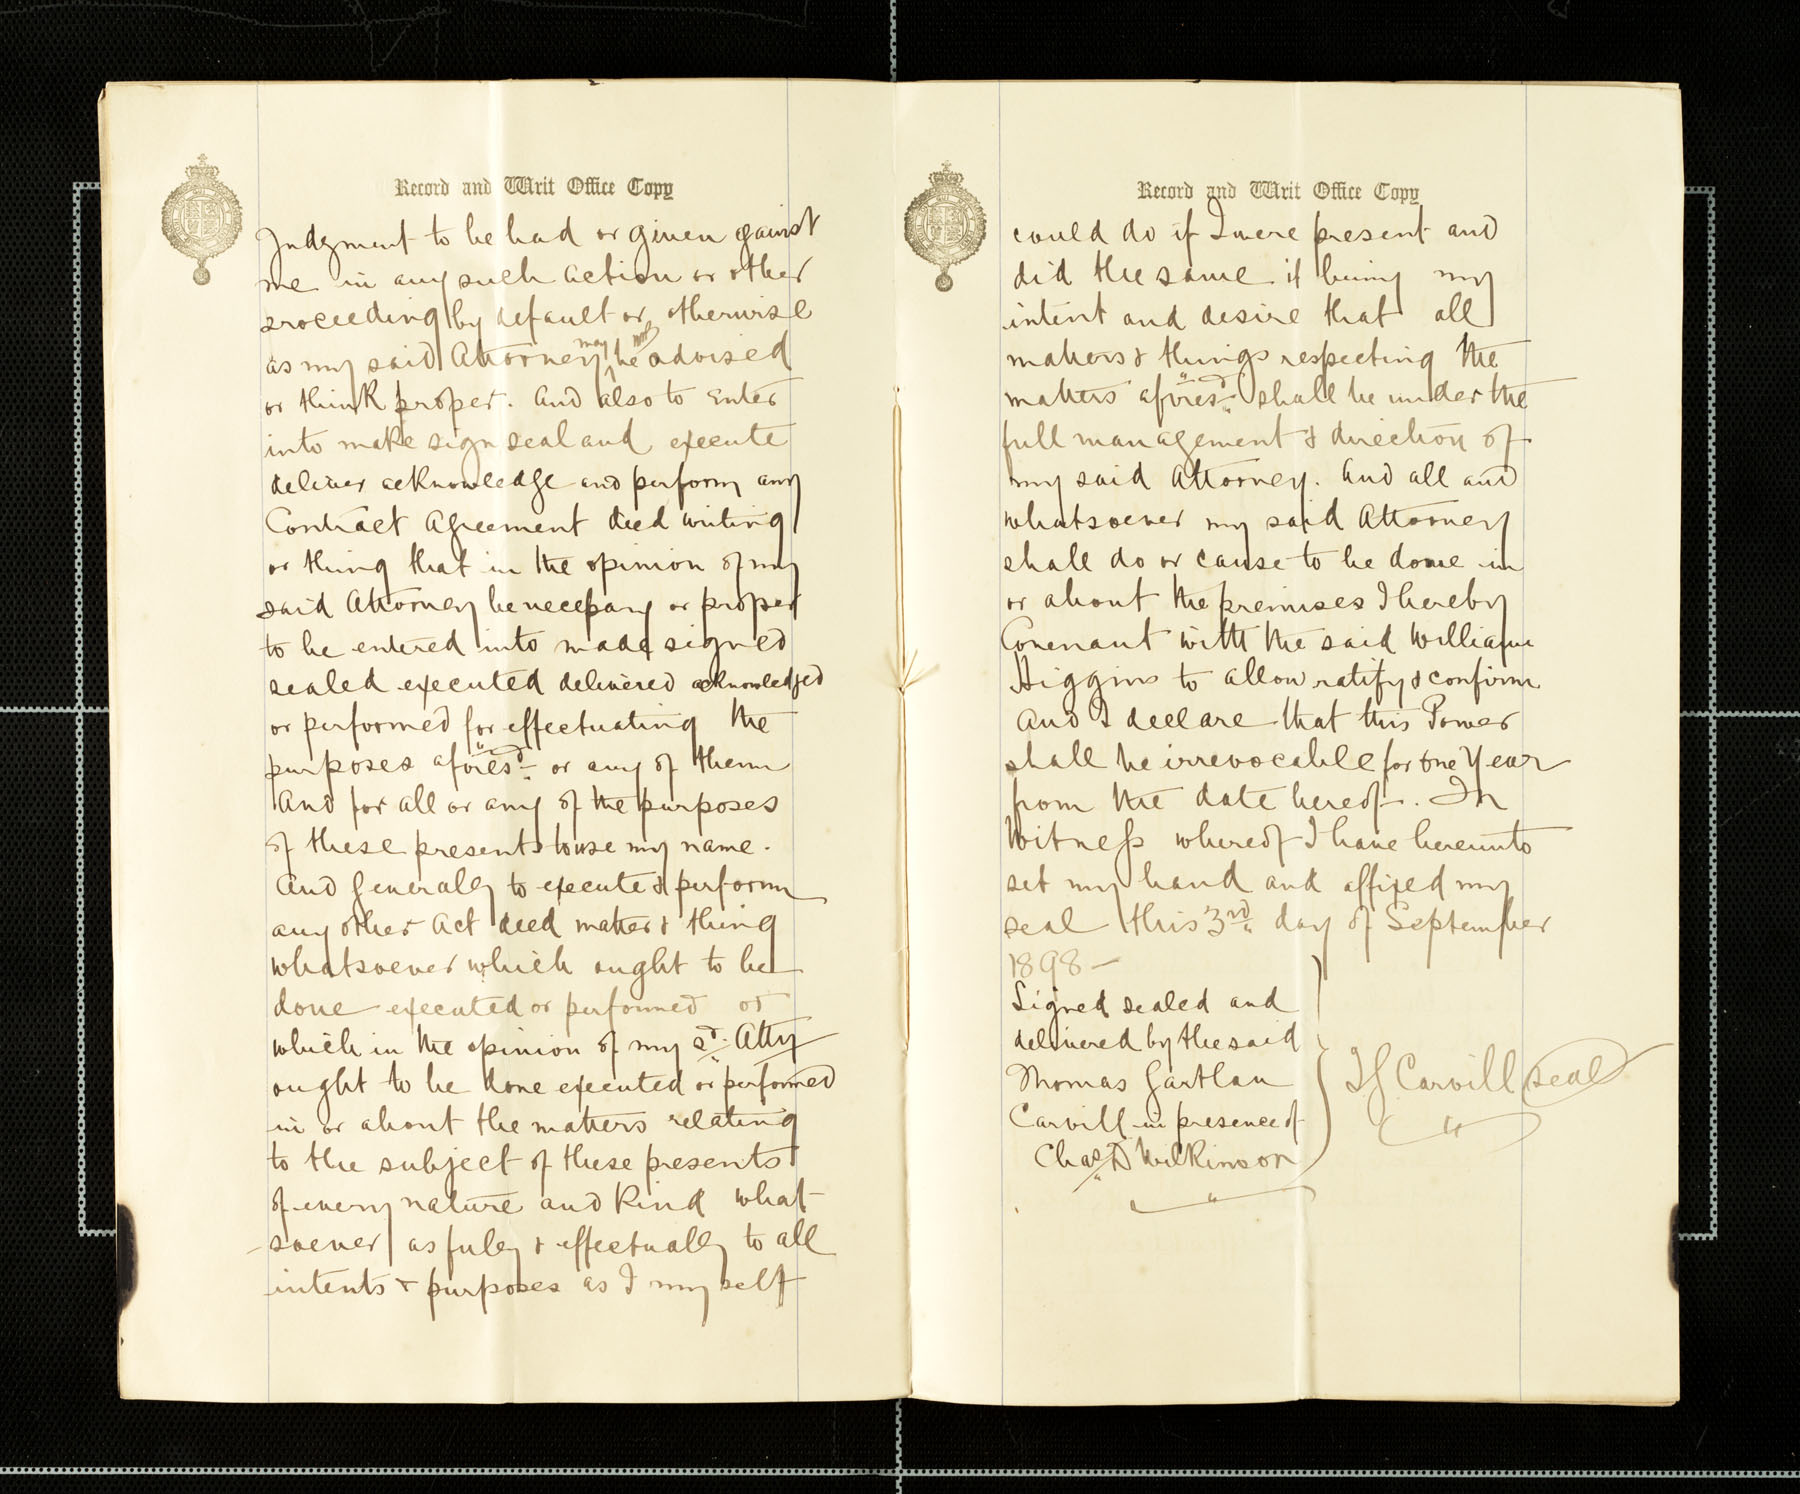 Record and Writ Office Copy
Judgment to be had or given against
me in any such action or other
proceeding by default or otherwise
as my said Attorney may be advised
or think proper. And also to Enter
into make sign seal and execute
deliver acknowledge and perform any
Contract Agreement deed writing
or thing that in the opinion of my
said Attorney be necessary or proper
to be entered into made signed
sealed executed delivered acknowledged
or performed for effectuating the
purposes aforesd. or any of them
And for all or any of the purposes
of these presents to use my name.
And generally to execute & perform
any other Act deed matter & thing
whatsoever which ought to be
done executed or performed or
which in the opinion of my sd. Atty
ought to be done executed or performed
in or about the matters relating
to the subject of these presents
of every nature and kind what-
-soever as fully & effectually to all
intents & purposes as I my self
Record and Writ Office Copy
could do if I were present and
did the same it being my
intent and desire that all
matters & things respecting the
matters aforesd. shall be under the
full management & direction of
my said Attorney. And all and
whatsoever my said Attorney
shall do or cause to be done in
or about the premises I hereby
Covenant with the said William
Higgins to allow ratify & confirm
And I declare that this Power
shall be irrevocable for one Year
from the date hereof. In
Witness whereof I have hereunto
set my hand and affixed my
seal this 3rd day of September
1898 -
Signed sealed and
delivered by the said
Thomas Gartlan
Carvill in presence of
Chas D Wilkinson
T G Carvill seal